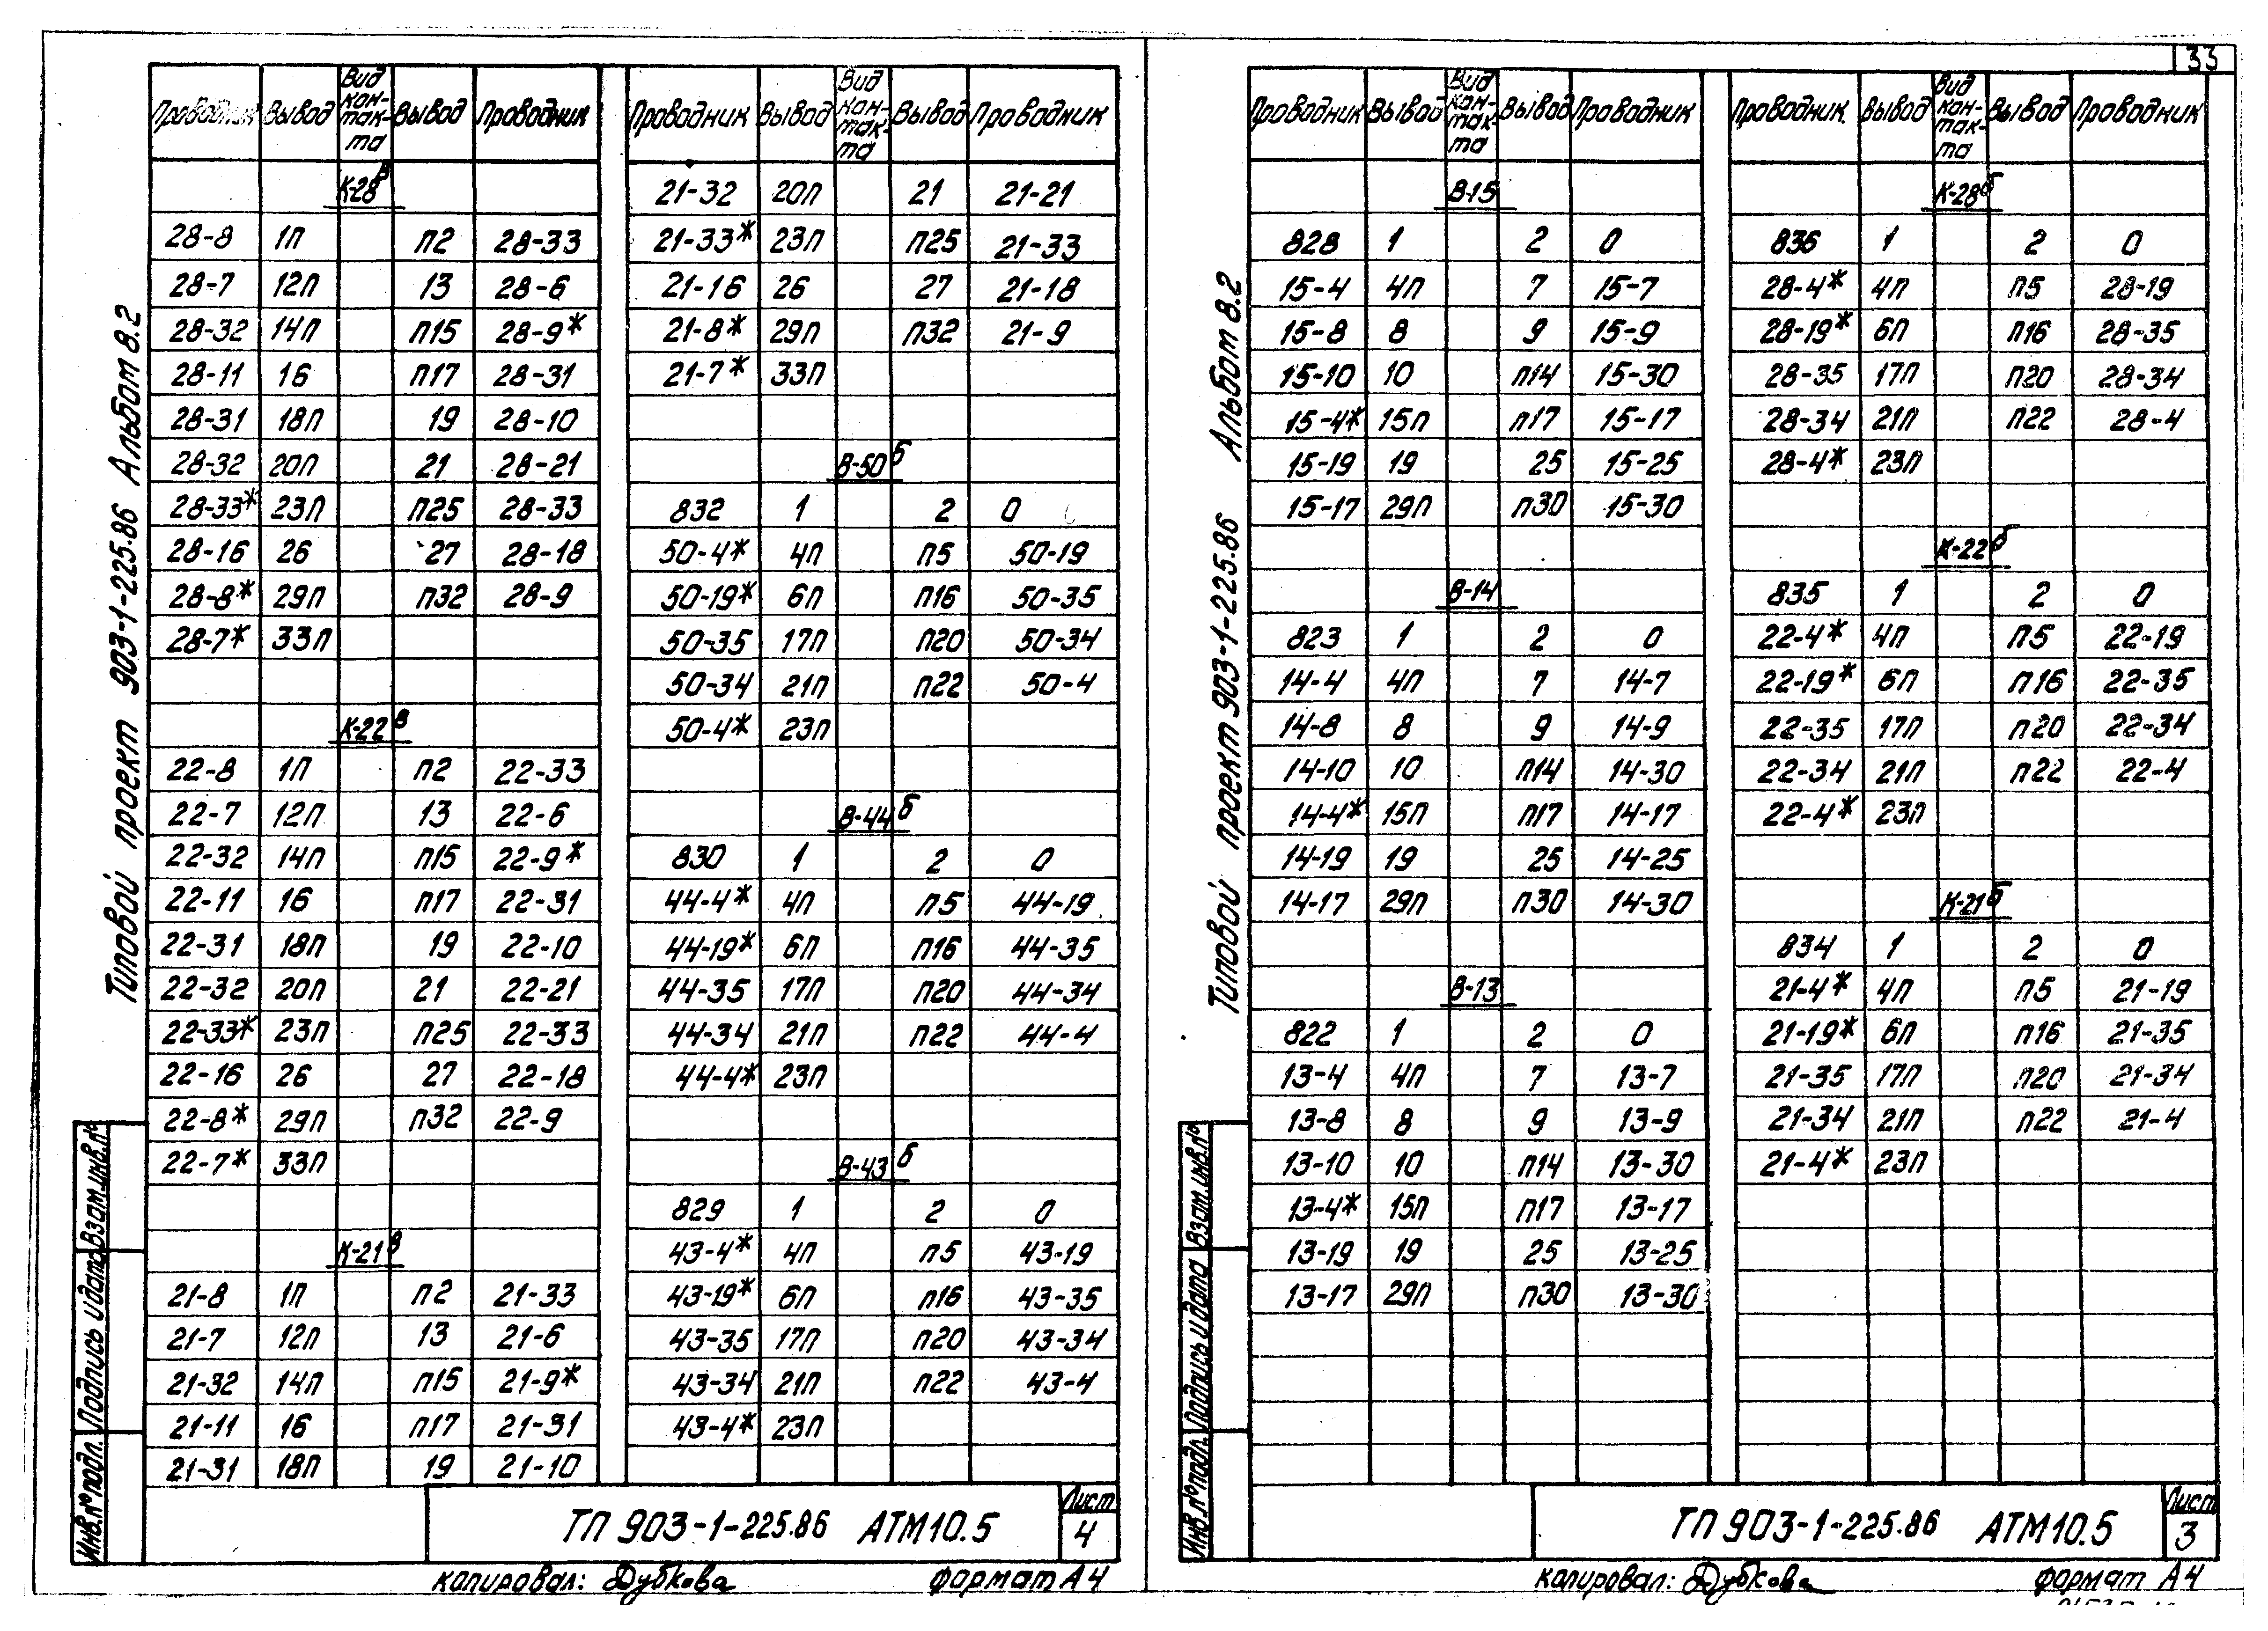 33
Типовой проект 903-1-225.86 Альбом 8.2
Проводник Вывод Вид кон-так-та Вывод Проводник
К-28в
28-8 1П П2 28-33
28-7 12П 13 28-6
28-32 14П П15 28-9*
28-11 16 П17 28-31
28-31 18П 19 28-10
28-32 20П 21 28-21
28-33* 23П П25 28-33
28-16 26 27 28-18
28-8* 29П П32 28-9
28-7* 33П
К-22в
22-8 1П П2 22-33
22-7 12П 13 22-6
22-32 14П П15 22-9*
22-11 16 П17 22-31
22-31 18П 19 22-10
22-32 20П 21 22-21
22-33* 23П П25 22-33
22-16 26 27 22-18
22-8* 29П П32 22-9
22-7* 33П
К-21в
21-8 1П П2 21-33
21-7 12П 13 21-6
21-32 14П П15 21-9*
21-11 16 П17 21-31
21-31 18П 19 21-10
Проводник Вывод Вид кон-так-та Вывод Проводник
21-32 20П 21 21-21
21-33* 23П П25 21-33
21-16 26 27 21-18
21-8* 29П П32 21-9
21-7* 33П
В-50б
832 1 2 0
50-4* 4П П5 50-19
50-19* 6П П16 50-35
50-35 17П П20 50-34
50-34 21П П22 50-4
50-4* 23П
В-44б
830 1 2 0
44-4* 4П П5 44-19
44-19* 6П П16 44-35
44-35 17П П20 44-34
44-34 21П П22 44-4
44-4* 23П
В-43б
829 1 2 0
43-4* 4П П5 43-19
43-19* 6П П16 43-35
43-35 17П П20 43-34
43-34 21П П22 43-4
43-4* 23П
Инв.№подл. Подпись и дата Взам.инв.№
ТП 903-1-225.86 АТМ10.5
Лист
4
копировал: Дубкова формат А4
Типовой проект 903-1-225.86 Альбом 8.2
Проводник Вывод Вид кон-так-та Вывод Проводник
В-15
828 1 2 0
15-4 4П 7 15-7
15-8 8 9 15-9
15-10 10 П14 15-30
15-4* 15П П17 15-17
15-19 19 25 15-25
15-17 29П П30 15-30
В-14
823 1 2 0
14-4 4П 7 14-7
14-8 8 9 14-9
14-10 10 П14 14-30
14-4* 15П П17 14-17
14-19 19 25 14-25
14-17 29П П30 14-30
В-13
822 1 2 0
13-4 4П 7 13-7
13-8 8 9 13-9
13-10 10 П14 13-30
13-4* 15П П17 13-17
13-19 19 25 13-25
13-17 29П П30 13-30
Проводник Вывод Вид кон-так-та Вывод Проводник
К-28б
836 1 2 0
28-4* 4П П5 28-19
28-19* 6П П16 28-35
28-35 17П П20 28-34
28-34 21П П22 28-4
28-4* 23П
К-22б
835 1 2 0
22-4* 4П П5 22-19
22-19* 6П П16 22-35
22-35 17П П20 22-34
22-34 21П П22 22-4
22-4* 23П
К-21б
834 1 2 0
21-4* 4П П5 21-19
21-19* 6П П16 21-35
21-35 17П П20 21-34
21-34 21П П22 21-4
21-4* 23П
Инв.№подл. Подпись и дата Взам.инв.№
ТП 903-1-225.86 АТМ10.5
Лист
3
копировал: Дубкова формат А4